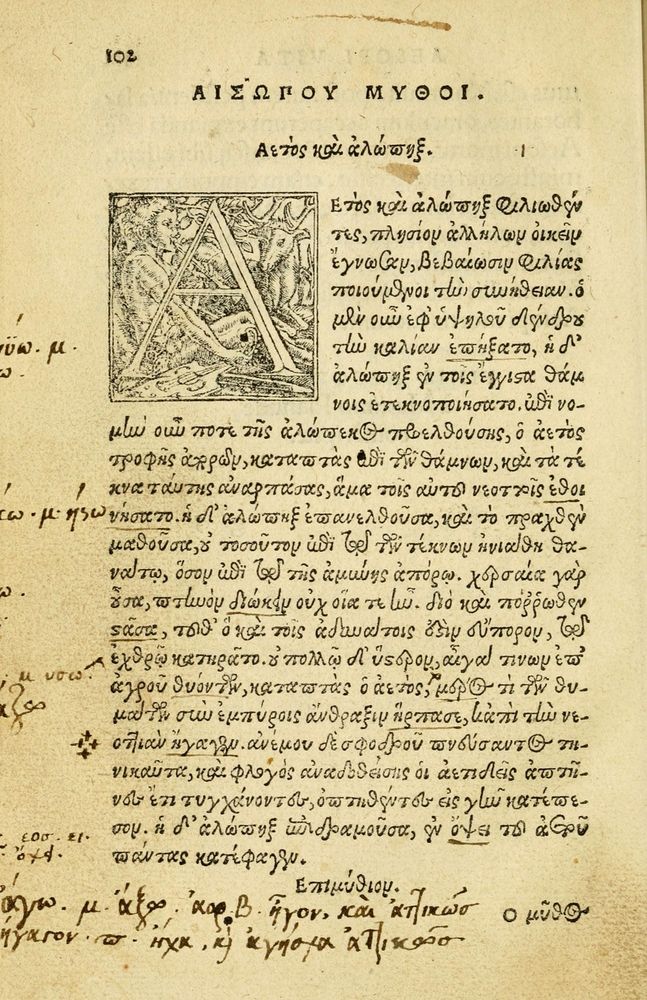 102
ΑΙΣΩΠΟΥ ΜΥΘΟΙ.
Αετὸς καὶ ἀλώπηξ. 1
ΑΕτὸς καὶ ἀλώπηξ φιλιωθέν
τες, πλησίον ἀλλήλων οἰκεῖν
ἔγνωσαν, βεβαίωσιν φιλίας
ποιούμενοι τὴν συνήθειαν. ὁ
μὲν οὖν ἐφ' ὑψηλοῦ δένδρου
τὴν καλίαν ἐπήξατο, ἡ δ'
ἀλώπηξ ἐν τοῖς ἔγγιστα θάμ
νοις ἐτεκνοποιήσατο. ἐπὶ νο-
μὴν οὖν ποτε τῆς ἀλώπεκος προελθούσης, ὁ ἀετὸς
τροφῆς ἀπορῶν, καταπτὰς ἐπὶ τῶν θάμνων, καὶ τὰ τέ
κνα ταύτης ἀναρπάσας, ἅμα τοῖς αὑτοῦ νεοττοῖς ἐθοι
νήσατο. ἡ δ' ἀλώπηξ ἐπανελθοῦσα, καὶ τὸ πραχθὲν
μαθοῦσα, οὐ τοσοῦτον ἐπὶ τῷ τῶν τέκνων ἠνιάθη θα-
νάτῳ, ὅσον ἐπὶ τῷ τῆς ἀμύνης ἀπόρῳ. χερσαία γὰρ
οὖσα, πτηνὸν διώκειν οὐχ οἵα τε ἦν. διὸ καὶ πόρρωθεν
στᾶσα, τοῦθ' ὃ καὶ τοῖς ἀδυνάτοις ἐστὶν εὔπορον, τῷ
ἐχθρῷ κατηρᾶτο. οὐ πολλῷ δ' ὕστερον, αἶγά τινων ἐπ'
ἀγροῦ θυόντων, καταπτὰς ὁ ἀετὸς, μέρος τὶ τῶν θυ-
μάτων σὺν ἐμπύροις ἄνθραξιν ἥρπασε, κἀπὶ τὴν νε-
οττιὰν ἤγαγεν. ἀνέμου δὲ σφοδροῦ πνεύσαντος τη-
νικαῦτα, καὶ φλογὸς ἀναδοθείσης οἱ ἀετιδεῖς ἀπτῆ-
νες ἔτι τυγχάνοντες, ὀπτηθέντες εἰς γῆν κατέπε-
σον. ἡ δ' ἀλώπηξ ἐπιδραμοῦσα, ἐν ὄψει τοῦ ἀετοῦ
πάντας κατέφαγεν.
Επιμύθιον.
Ο μῦθος